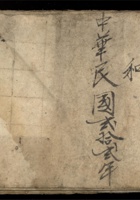 和
中華民國貳拾貳年